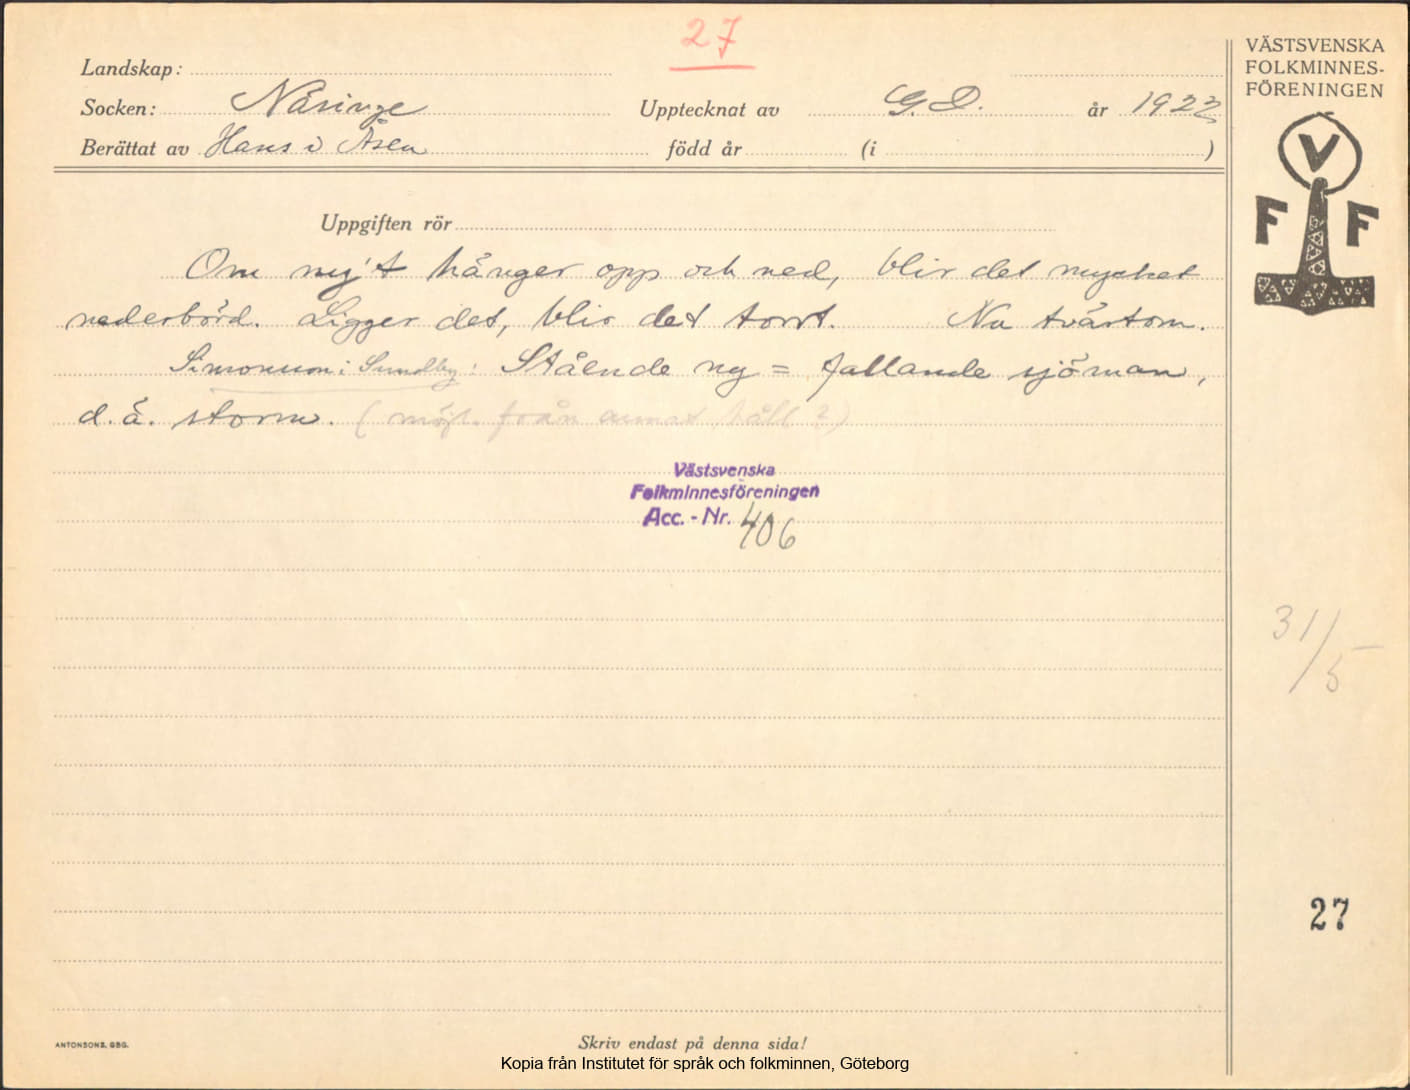 27
VÄSTSVENSKA
FOLKMINNES-
FÖRENINGEN
V
F F
Landskap:
Socken: Näsinge Upptecknat av G. D. år 1922
Berättat av Hans i Åsen född år (i )
Uppgiften rör
Om ny't hänger opp och ned, blir det mycket
nederbörd. Ligger det, blir det torrt. Na tvärtom.
Simonsson i Sundby: Stående ny = fallande sjöman,
d.ä. storm. (möjl. från annat håll?)
Västsvenska
Folkminnesföreningen
Acc. - Nr. 406
31/5
27
ANTONSONS, GBG.
Skriv endast på denna sida!
Kopia från Institutet för språk och folkminnen, Göteborg